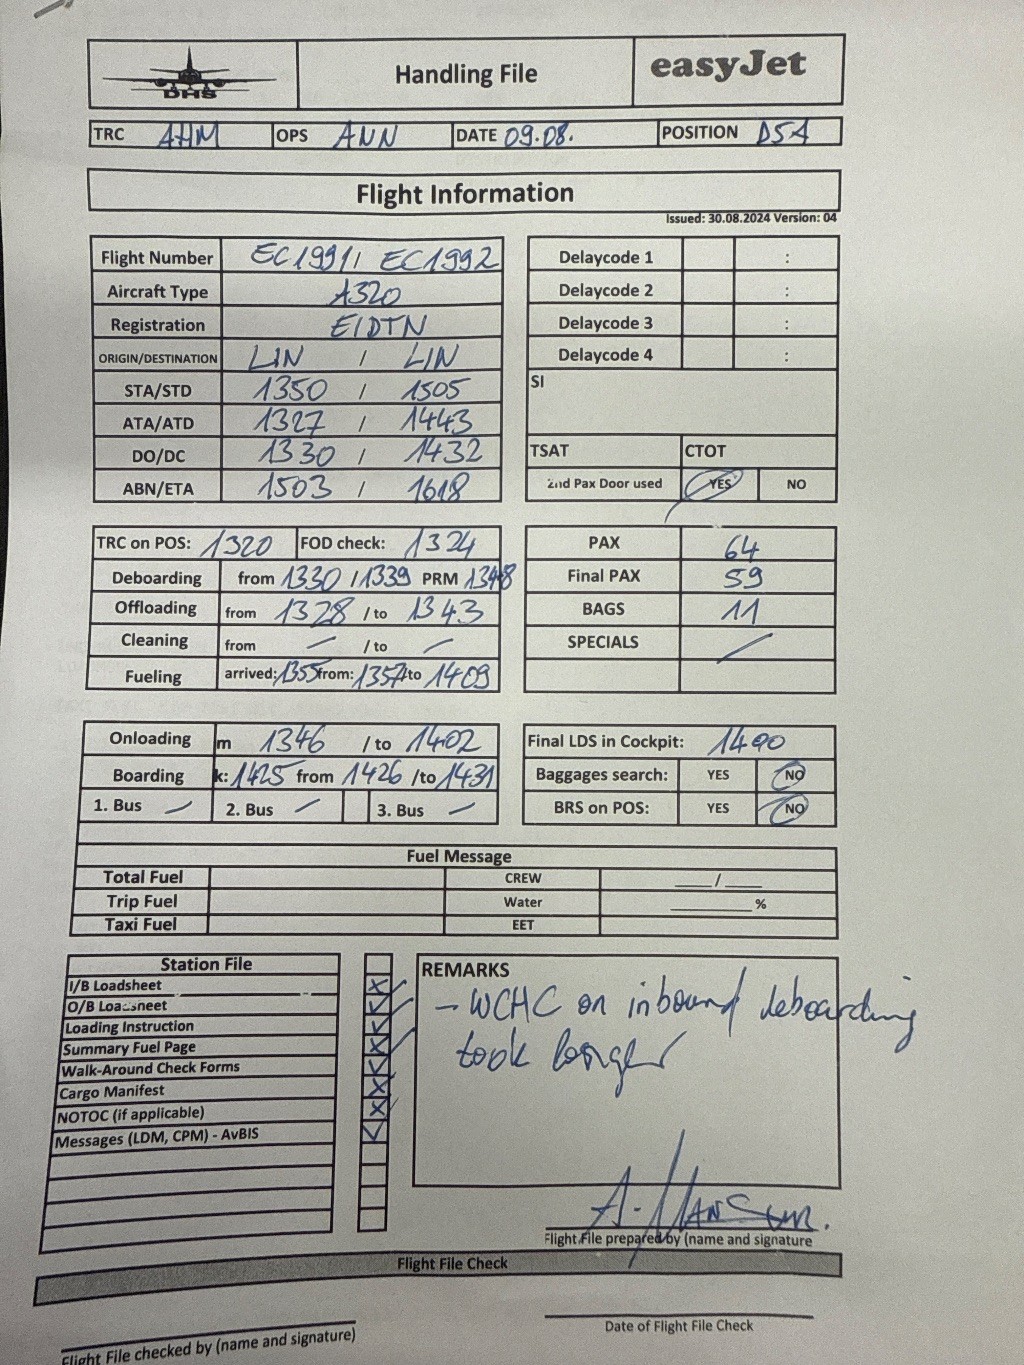 DHS
Handling File
easyJet
TRC AHM OPS ANN DATE 09.08. POSITION D5A
Flight Information
Issued: 30.08.2024 Version: 04
Flight Number EC1991/ EC1992
Aircraft Type A320
Registration EIDTN
ORIGIN/DESTINATION LIN / LIN
STA/STD 1350 / 1505
ATA/ATD 1327 / 1443
DO/DC 1330 / 1432
ABN/ETA 1503 / 1618
Delaycode 1 :
Delaycode 2 :
Delaycode 3 :
Delaycode 4 :
SI
TSAT CTOT
2nd Pax Door used YES NO
TRC on POS: 1320 FOD check: 1324
Deboarding from 1330 / 1339 PRM 1348
Offloading from 1328 / to 1343
Cleaning from — / to —
Fueling arrived: 1355 from: 1357 to 1409
PAX 64
Final PAX 59
BAGS 11
SPECIALS /
Onloading m 1346 / to 1402
Boarding k: 1425 from 1426 /to 1431
1. Bus — 2. Bus — 3. Bus —
Final LDS in Cockpit:
Baggages search: YES NO
BRS on POS: YES NO
Fuel Message
Total Fuel CREW ___/___
Trip Fuel Water ________%
Taxi Fuel EET
Station File
I/B Loadsheet
O/B Loadsheet
Loading Instruction
Summary Fuel Page
Walk-Around Check Forms
Cargo Manifest
NOTOC (if applicable)
Messages (LDM, CPM) - AvBIS
REMARKS
- WCHC on inbound deboarding
took longer
A.
Flight File prepared by (name and signature
Flight File Check
Flight File checked by (name and signature)
Date of Flight File Check